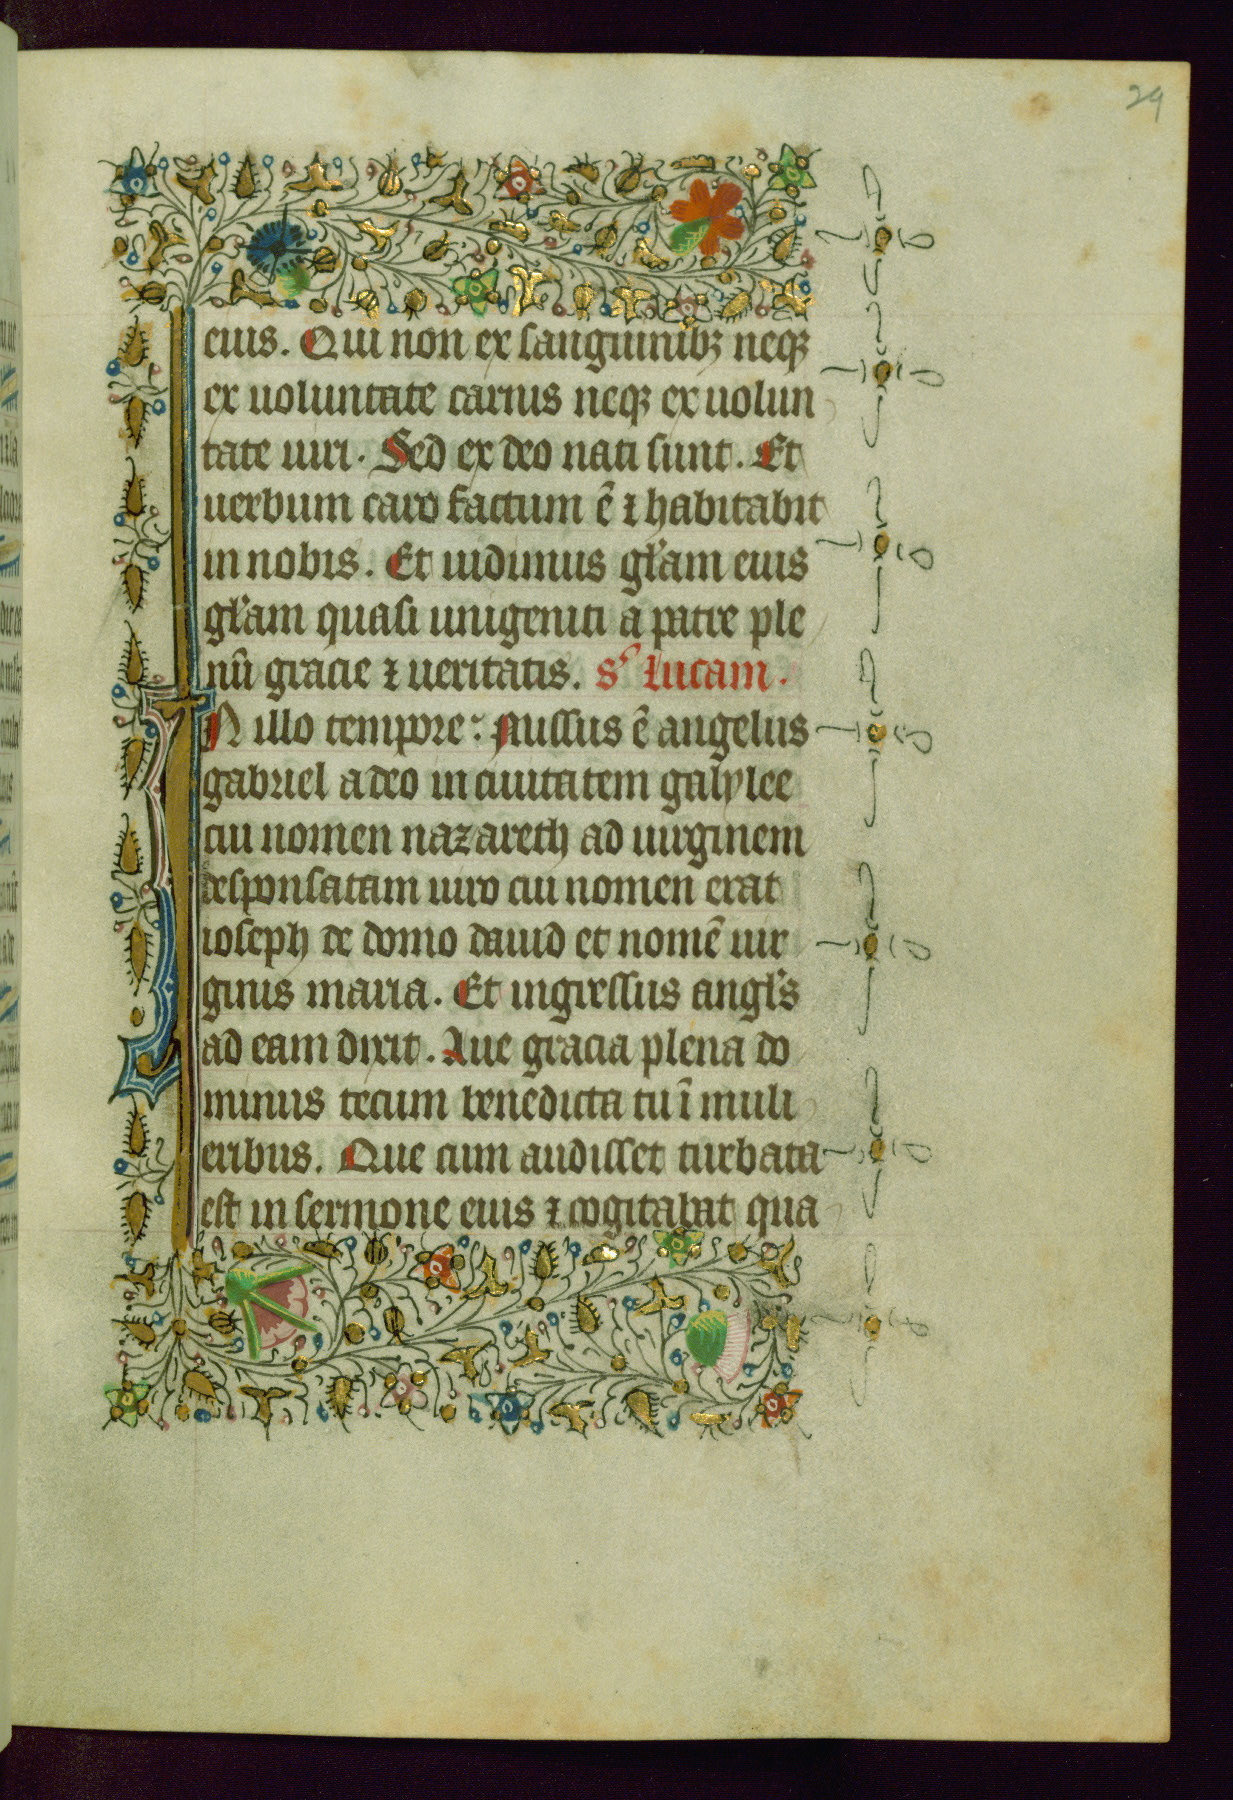 29
eius. Qui non ex sanguinibꝫ neqꝫ
ex uoluntate carnis neqꝫ ex uolun
tate uiri. Sed ex deo nati sunt. Et
uerbum caro factum ē ⁊ habitabit
in nobis. Et uidimus gl̄am eius
gl̄am quasi unigeniti a patre ple
nū gracie ⁊ ueritatis. sͬ Lucam.
IN illo tempore: Missus ē angelus
gabriel a deo in ciuitatem galylee
cui nomen nazareth ad uirginem
desponsatam uiro cui nomen erat
ioseph de domo dauid et nomē uir
ginis maria. Et ingressus angl̄s
ad eam dixit. Aue gracia plena do
minus tecum benedicta tu ī muli
eribus. Que cum audisset turbata
est in sermone eius ⁊ cogitabat qua